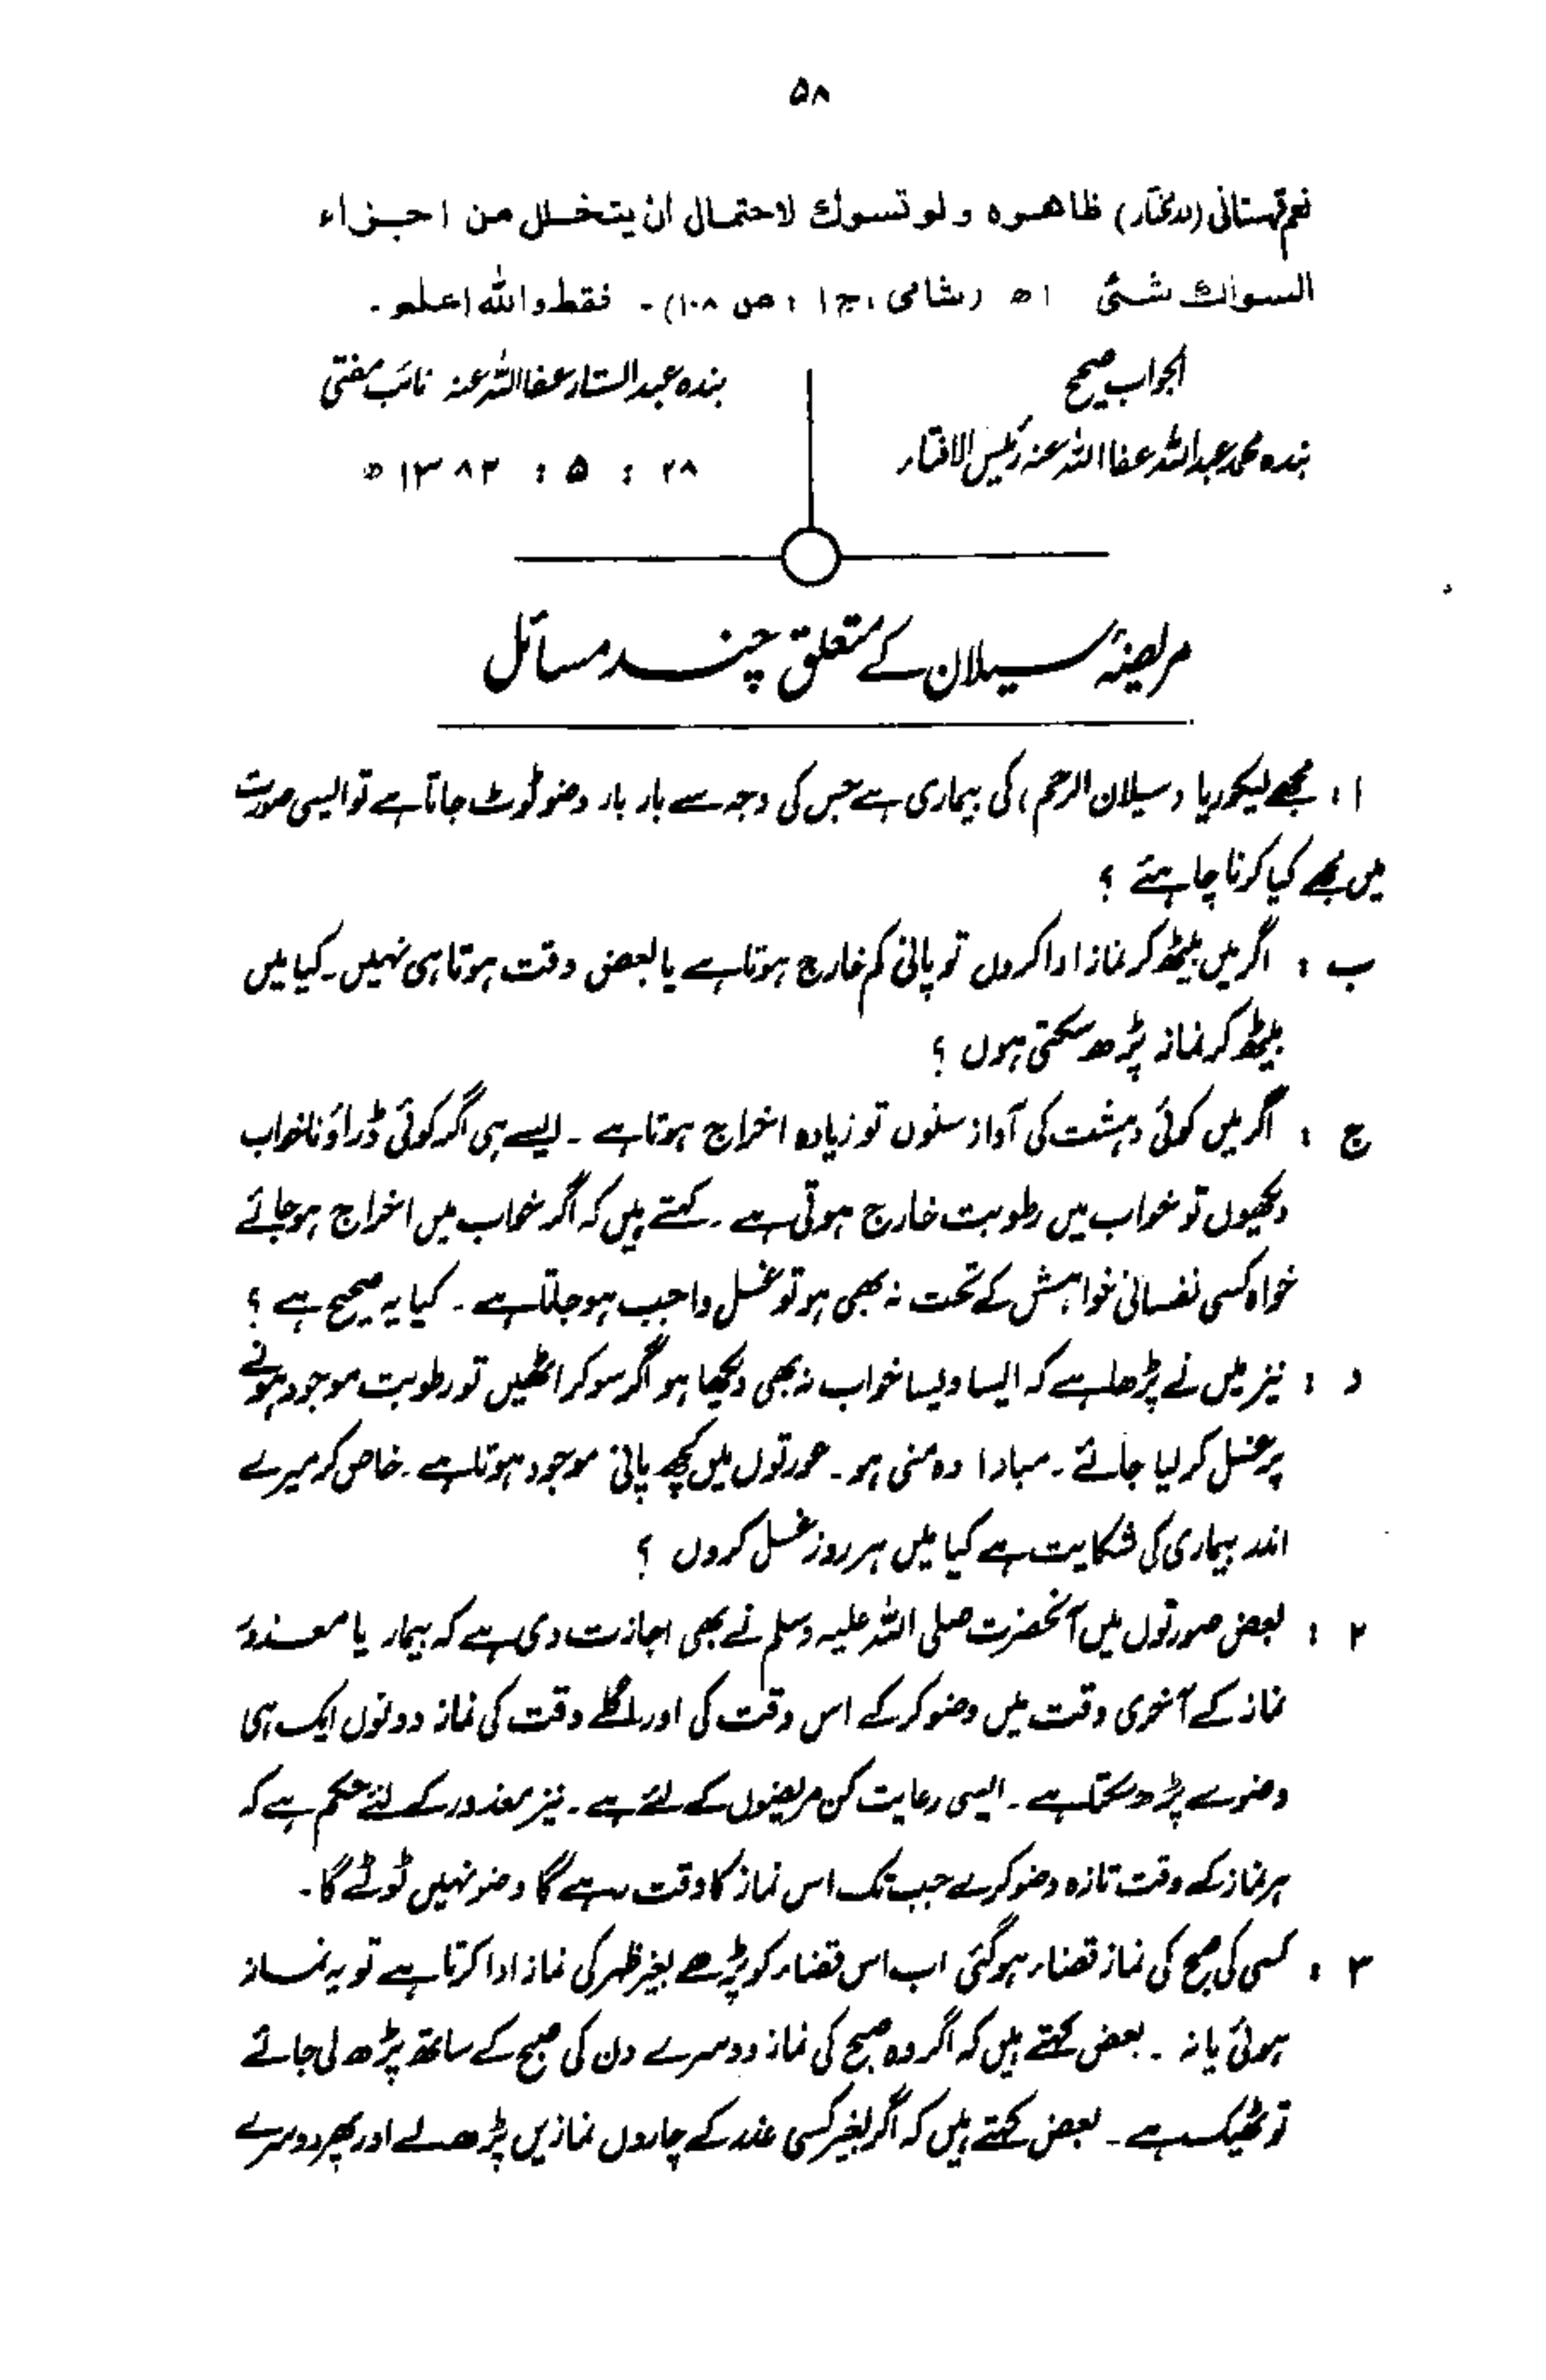 ۵۸
نعم قهستانی (درمختار) ظاهره ولو تسوك لاحتمال ان يتخلل من اجزاء
السواك شئی اھ (شامی ، ج ۱ : ص ۱۰۸)۔ فقط واللہ اعلم ۔
الجواب صحیح
بندہ محمد عبداللہ عفا اللہ عنہ رئیس الافتاء
بندہ عبدالستار عفا اللہ عنہ نائب مفتی
۲۸ : ۵ : ۱۳۸۲ ھ
مریضۂ سیلان کے متعلق چند مسائل
۱ : مجھے لیکوریا (سیلان الرحم) کی بیماری ہے جس کی وجہ سے بار بار وضو ٹوٹ جاتا ہے تو ایسی صورت
میں مجھے کیا کرنا چاہئے ؟
ب : اگر میں بیٹھ کر نماز ادا کروں تو پانی کم خارج ہوتا ہے یا بعض وقت ہوتا ہی نہیں ۔ کیا میں
بیٹھ کر نماز پڑھ سکتی ہوں ؟
ج : اگر میں کوئی دہشت کی آواز سنوں تو زیادہ اخراج ہوتا ہے ۔ ایسے ہی اگر کوئی ڈراؤنا خواب
دیکھوں تو خواب میں رطوبت خارج ہوتی ہے ۔ کہتے ہیں کہ اگر خواب میں اخراج ہو جائے
خواہ کسی نفسانی خواہش کے تحت نہ بھی ہو تو غسل واجب ہو جاتا ہے ۔ کیا یہ صحیح ہے ؟
د : نیز میں نے پڑھا ہے کہ ایسا ویسا خواب نہ بھی دیکھا ہو اگر سو کر اٹھیں تو رطوبت موجود ہونے
پر غسل کر لیا جائے ۔ مبادا وہ منی ہو ۔ عورتوں میں کچھ پانی موجود ہوتا ہے ۔ خاص کر میرے
اندر بیماری کی شکایت ہے کیا میں ہر روز غسل کروں ؟
۲ : بعض صورتوں میں آنحضرت صلی اللہ علیہ وسلم نے بھی اجازت دی ہے کہ بیمار یا معذور
نماز کے آخری وقت میں وضو کر کے اس وقت کی اور اگلے وقت کی نماز دونوں ایک ہی
وضو سے پڑھ سکتا ہے ۔ ایسی رعایت کن مریضوں کے لئے ہے ۔ نیز معذور کے لئے حکم ہے کہ
ہر نماز کے وقت تازہ وضو کرے جب تک اس نماز کا وقت رہے گا وضو نہیں ٹوٹے گا ۔
۳ : کسی کی صبح کی نماز قضاء ہو گئی اب اس قضاء کو پڑھے بغیر ظہر کی نماز ادا کرتا ہے تو یہ نماز
ہوئی یا نہ ۔ بعض کہتے ہیں کہ اگر وہ صبح کی نماز دوسرے دن کی صبح کے ساتھ پڑھ لی جائے
تو ٹھیک ہے ۔ بعض کہتے ہیں کہ اگر بغیر کسی عذر کے چاروں نمازیں پڑھ لے اور پھر دوسرے